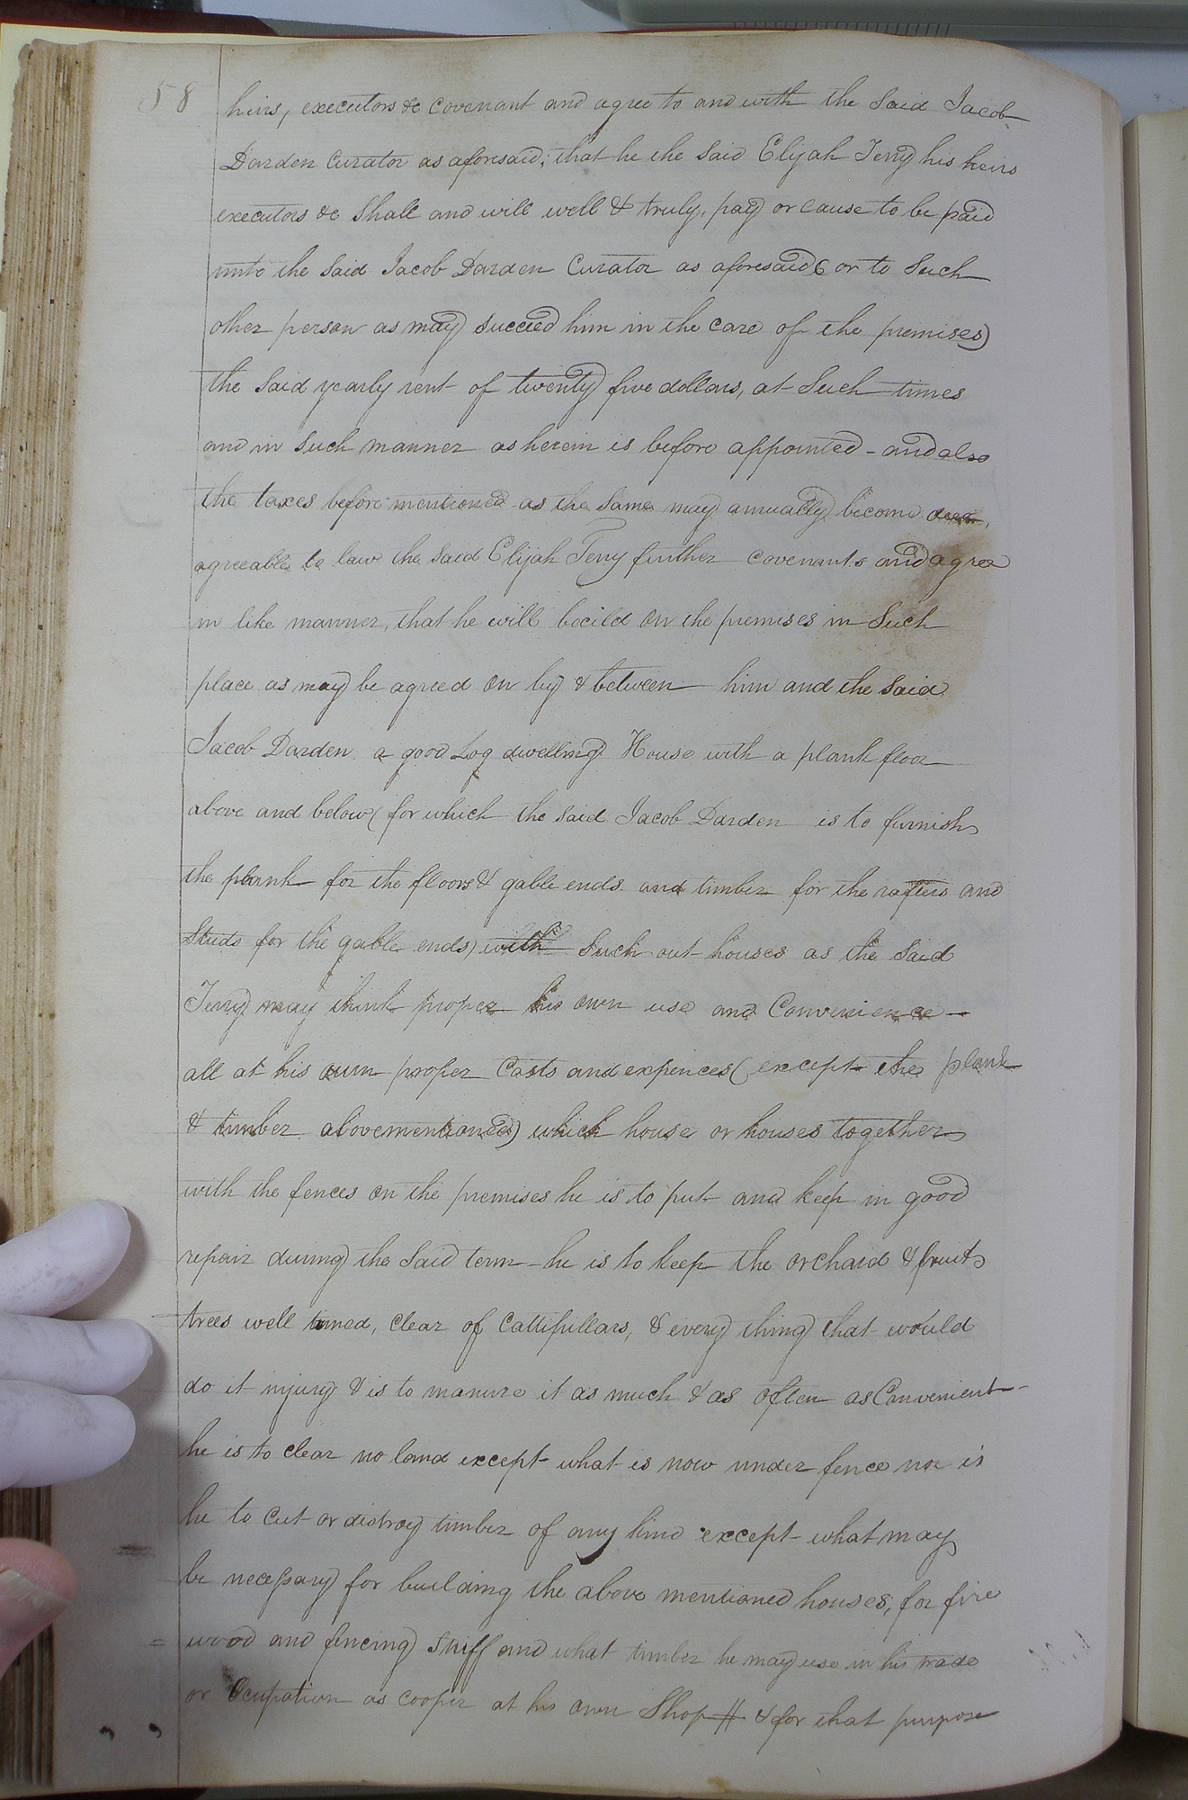 58
heirs, executors &c covenant and agree to and with the said Jacob
Darden Curator as aforesaid; that he the said Elijah Terry his heirs
executors &c shall and will well & truly, pay or cause to be paid
unto the said Jacob Darden Curator as aforesaid (or to such
other person as may succeed him in the care of the premises)
the said yearly rent of twenty five dollars, at such times
and in such manner as herein is before appointed - and also
the taxes before mentioned as the same may annually become
agreeable to law the said Elijah Terry further covenants and agree
in like manner, that he will build on the premises in such
place as may be agreed on by & between him and the said
Jacob Darden a good Log dwelling House with a plank floor
above and below (for which the said Jacob Darden is to furnish
the plank for the floors & gable ends and timber for the rafters and
studs for the gable ends) with such out houses as the said
Terry may think proper his own use and Convenience -
all at his own proper Costs and expences (except the plank
& timber abovementioned) which house or houses together
with the fences on the premises he is to put and keep in good
repair during the said term - he is to keep the orchard & fruit
trees well , clear of Cattipillars, & every thing that would
do it injury & is to manure it as much & as often as Convenient -
he is to clear no land except what is now under fence nor is
he to cut or distroy timber of any kind except what may
be necessary for building the above mentioned houses, for fire
wood and fencing stuff and what timber he may use in his trade
or Ocupation as cooper at his own Shop # & for that purpose